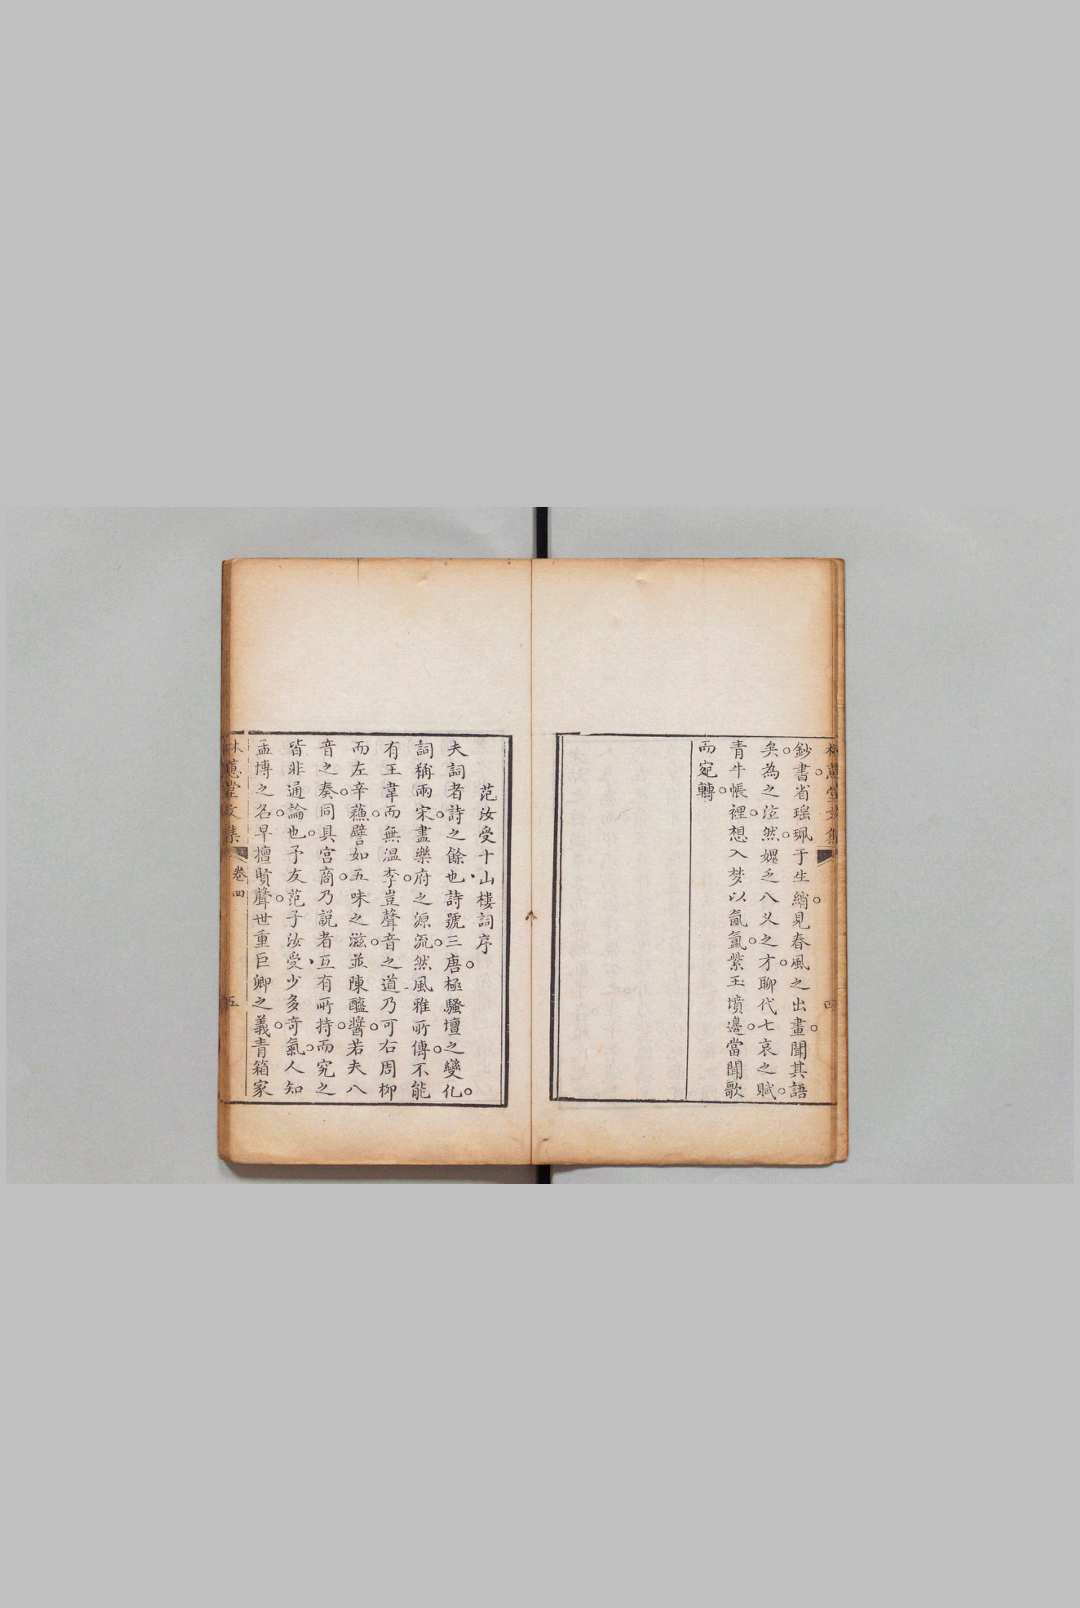 鈔書省瑶珮于生綃見春風之出畫聞其語
矣為之泣然媿乏八义之才聊代七哀之賦
青牛帳裡想入梦以氤氳紫玉墳邊當聞歌
而宛轉
范汝受十山樓詞序
夫詞者詩之餘也詩號三唐極騷壇之變化
詞稱兩宋盡樂府之源流然風雅所傳不能
有王韋而無溫李豈聲音之道乃可右周柳
而左辛蘓譬如五味之滋並陳醯醬若夫八
音之奏同具宮商乃説者互有所持而究之
皆非通論也予友范子汝受少多奇氣人知
孟博之名早擅賦聲世重巨卿之義青箱家
林蕙堂文集 卷四 五